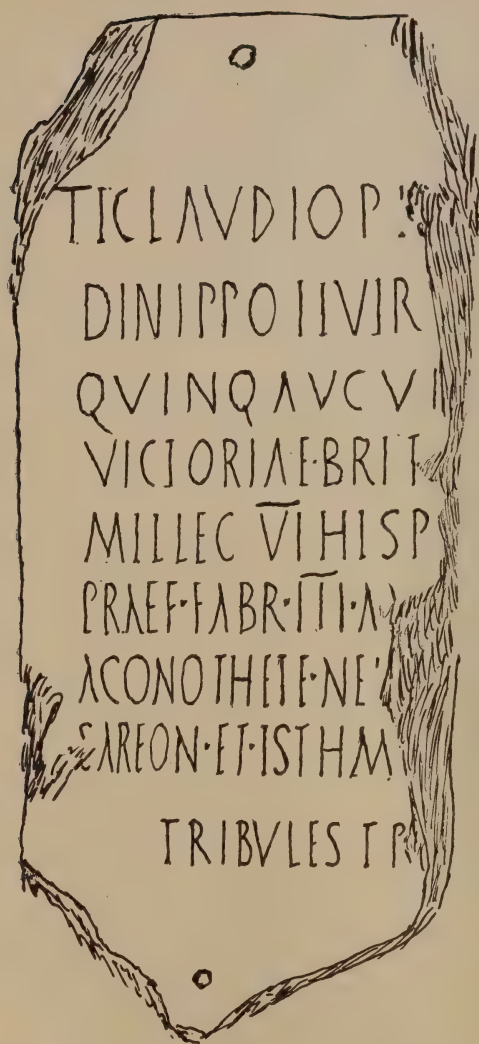 TI CLAVDIO P
DINIPPO IIVIR
QVINQ AVCVI
VICTORIAE·BRIT
MIL LEC V̅I̅ HISP
PRAEF·FABR·I̅I̅I̅·A
ACONOTHETE·NE
SAREON·ET·ISTHM
TRIBVLES TR